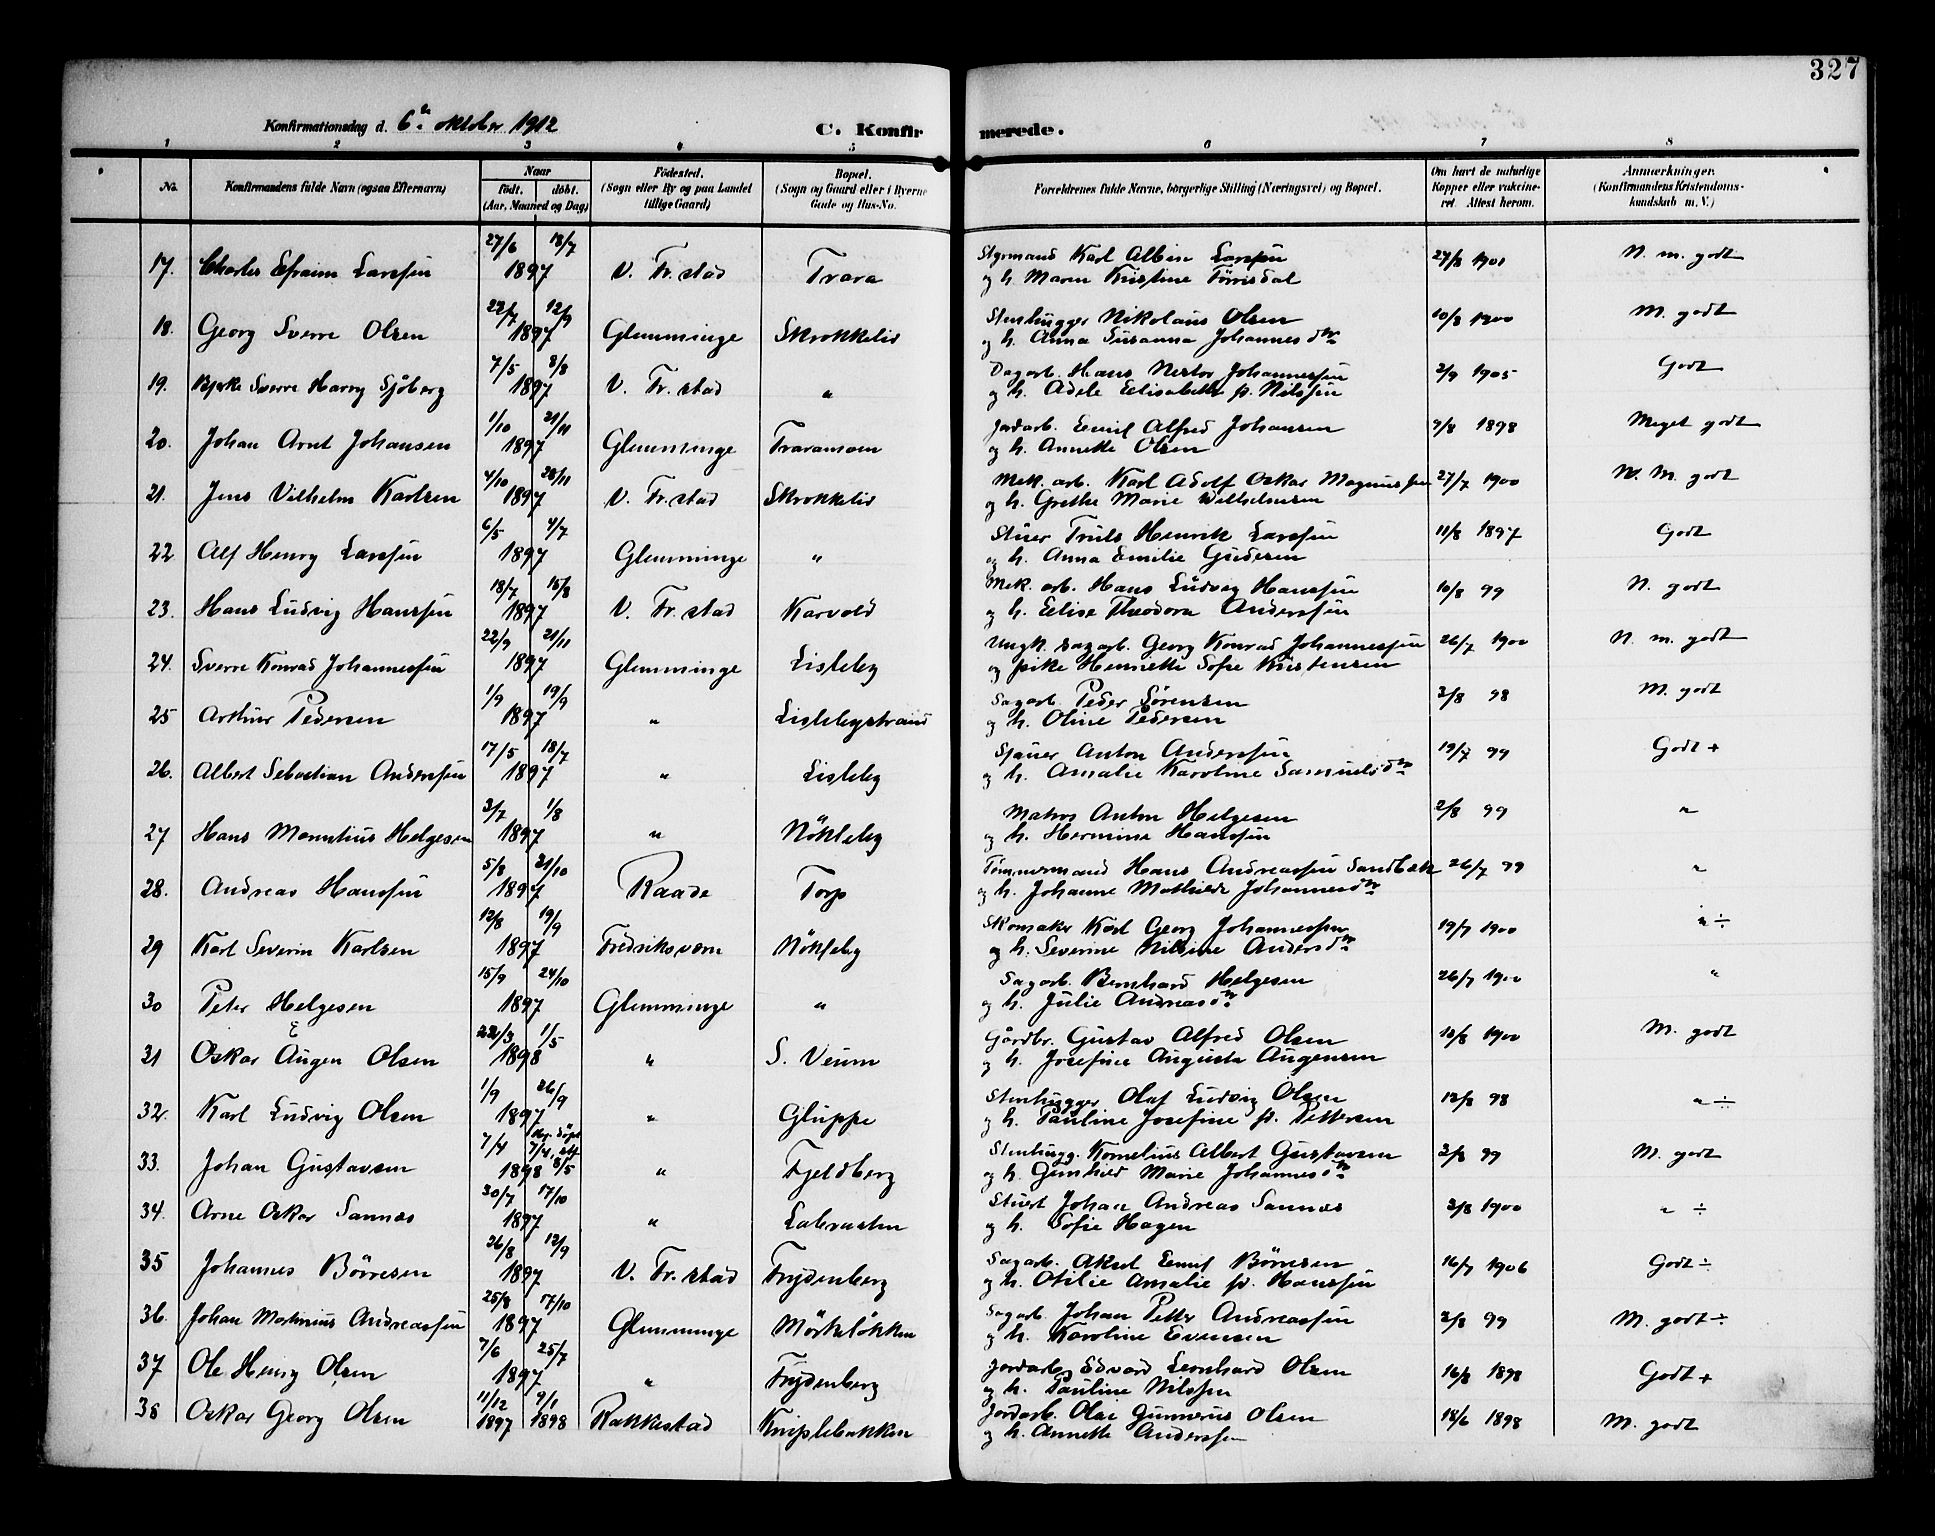 327
Konfirmationsdag d. 6te oktober 1912 C. Konfirmerede.
1 2 3 4 5 6 7 8
No. Konfirmandens fulde Navn (ogsaa Efternavn) Naar født. døbt. (Aar, Maaned og Dag) Fødested. (Sogn eller By og paa Landet tillige Gaard) Bopæl. (Sogn og Gaard eller i Byerne Gade og Hus-No. Forældrenes fulde Navne, borgerlige Stilling (Næringsvei) og Bopæl. Om havt de naturlige Kopper eller vaccineret. Attest herom. Anmærkninger. (Konfirmandens Kristendomskundskab m. V.)
17. Charles Efraim Larssen 27/6 18/7 1897 V. Fr.stad Trara Styrmand Karl Albin Larssen 27/8 1901 N. m. godt
og h. Maren Kristine Tørrisdal
18. Georg Sverre Olsen 22/7 12/9 1897 Glemminge Skrokkelid Stenhugger Nikolaus Olsen 10/8 1900 M. godt
og h. Anna Susanna Johannesdtr
19. Bjarke Sverre Harry Sjöberg 7/5 8/8 1897 V. Fr.stad " Dagarb. Hans Nestor Johannessen 2/9 1905 Godt
og h. Adele Elisabeth f. Nilssen
20. Johan Arnt Johansen 1/10 21/11 1897 Glemminge Traramoen Jordarb. Emil Alfred Johansen 9/8 1898 Meget godt
og h. Annette Olsen
21. Jens Vilhelm Karlsen 4/10 28/11 1897 V. Fr.stad Skrokkelid Mek. arb. Karl Adolf Oskar Magnussen 27/7 1900 N. M. godt
og h. Grethe Marie Wilhelmsen
22 Alf Henry Larssen 6/5 4/7 1897 Glemminge " Stuer Truls Henrik Larssen 11/8 1897 Godt
og h. Anna Emilie Gudesen
23. Hans Ludvig Hanssen 18/7 15/8 1897 V. Fr.stad Karvold Mek. arb. Hans Ludvig Hanssen 10/8 99 N. godt
og h. Elise Theodora Anderssen
24. Sverre Konrad Johannessen 22/9 21/11 1897 Glemminge Lisleby Ungk. sagarb. Georg Konrad Johannessen 26/7 1900 N. m. godt
og pike Henriette Sofie Kristensen
25 Arthur Pedersen 1/9 19/9 1897 " Lislebystrand Sagarb. Peder Sørensen 2/8 98 M. godt
og h. Oline Pedersen
26. Albert Sebastian Anderssen 17/5 18/7 1897 " Lisleby Sjauer Anton Anderssen 19/7 99 Godt +
og h. Amalie Karoline Samuelsdtr
27 Hans Mauritius Helgesen 3/7 1/8 1897 " Nökleby Matros Anton Helgesen 2/8 99 "
og h. Hermine Hanssen
28. Andreas Hanssen 5/8 21/10 1897 Raade Torp Tømmermand Hans Andreassen Sandbæk 26/7 99 "
og h. Johanne Mathilde Johannesdtr
29 Karl Severin Karlsen 12/8 19/9 1897 Fredriksværn Nökleby Skomaker Karl Georg Johannessen 19/7 1900 " ÷
og h. Severine Nilsine Andersdtr
30 Peter Helgesen 15/9 24/10 1897 Glemminge " Sagarb. Bernhard Helgesen 26/7 1900 "
og h. Julie Andreasdtr
31 Oskar Augen Olsen 22/3 1/5 1898 " S. Veum Gårdbr. Gustav Alfred Olsen 18/8 1900 M. godt
og h. Josefine Augusta Augensen
32. Karl Ludvig Olsen 1/9 26/9 1897 " Gluppe Stenhugger Olaf Ludvig Olsen 12/8 98 " ÷
og h. Pauline Josefine f. Pettersen
33. Johan Gustavsen 7/4 7/4 8/5 1898 " Fjeldberg Stenhugg. Kornelius Albert Gustavsen 2/8 99 M. godt
og h. Gunhild Marie Johannesdtr
34. Arne Oskar Sannæs 30/7 17/10 1897 " Labraaten Stuert Johan Andreas Sannæs 3/8 1900 " ÷
og h. Sofie Hagen
35 Johannes Börresen 26/8 12/9 1897 V. Fr.stad Frydenberg Sagarb. Aksel Emil Börresen 16/7 1906 Godt ÷
og h. Otilie Amalie f. Hanssen
36. Johan Martinius Andreassen 25/8 17/10 1897 Glemminge Mörkelökken Sagarb. Johan Petter Andreassen 2/8 99 M. godt ÷
og h. Karoline Evensen
37 Ole Henry Olsen 7/6 25/7 1897 " Frydenberg Jordarb. Edvard Leonhard Olsen 16/8 1898 Godt +
og h. Pauline Nilssen
38 Oskar Georg Olsen 11/12 1897 9/1 1898 Rakkestad Kniplebakken Jordarb. Olai Gunnerius Olsen 18/6 1898 M. godt
og h. Annette Anderssen